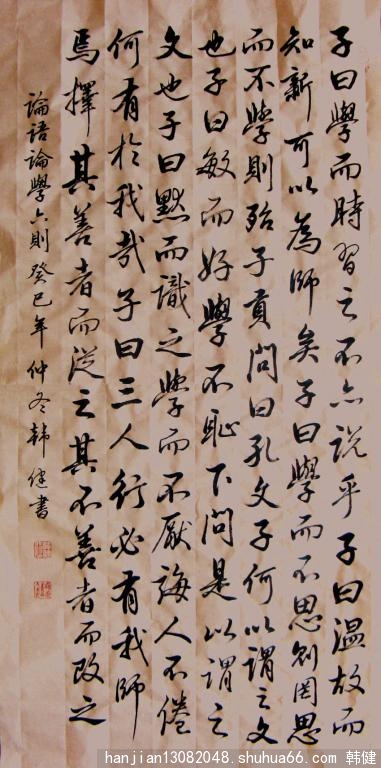 子曰學而時習之不亦說乎子曰溫故而
知新可以為師矣子曰學而不思則罔思
而不學則殆子貢問曰孔文子何以謂之文
也子曰敏而好學不恥下問是以謂之
文也子曰默而識之學而不厭誨人不倦
何有於我哉子曰三人行必有我師
焉擇其善者而從之其不善者而改之
論語論學六則癸巳年仲冬韓健書
hanjian13082048.shuhua66.com 韩健